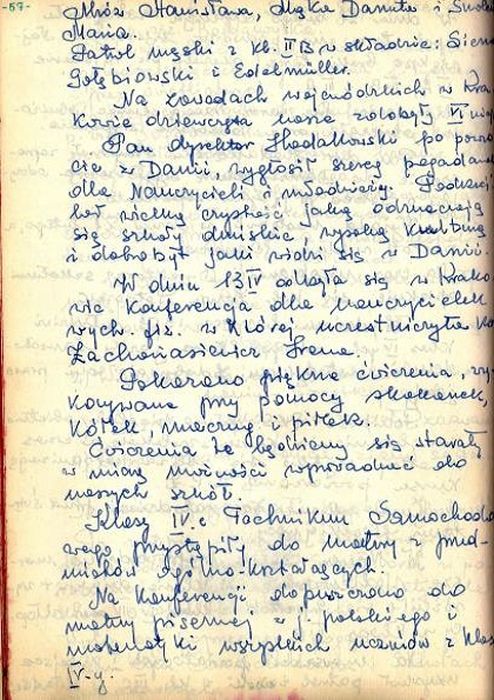 -57-
Mróz Stanisława, Mąka Danuta i
Maria.
Patrol męski z kl. II B w składzie:
Gołębiowski i Edelmüller.
Na zawodach wojewódzkich w Kra
kowie dziewczęta nasze zdobyły VI
Pan dyrektor Chodakowski po powro
cie z Danii, wygłosił szereg pogadanek
dla Nauczycieli i młodzieży. Podkreś
lał wielką czystość jaką odznaczają
się szkoły duńskie, wysoką kulturę
i dobrobyt jaki widzi się w Danii.
W dniu 13 IV odbyła się w Krako
wie Konferencja dla nauczycielek
wych. fiz. w której uczestniczyła
Zachariasiewicz Irena.
Pokazano piękne ćwiczenia, wy
konywane przy pomocy skakanek,
kółek, i piłek.
Ćwiczenia te będziemy się starały
w miarę możności wprowadzić do
naszych szkół.
Klasy IV c Technikum Samochodo
wego przystąpiły do matury z przed
miotów ogólno-kształcących.
Na Konferencji dopuszczono do
matury pisemnej z j. polskiego i
matematyki wszystkich uczniów z klas
IV-y.